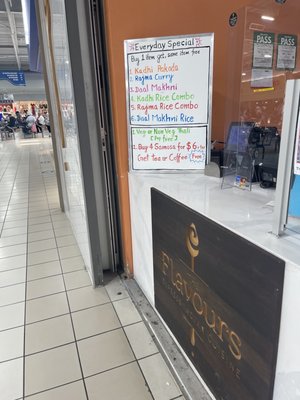 Everyday Special
Buy 1 item get, same item free
1. Kadhi Pakoda
2. Rajma Curry
3. Daal Makhni
4. Kadhi Rice Combo
5. Rajma Rice Combo
6. Daal Makhni Rice
Veg or Non Veg Thali
Buy 4 Samosa for $6
Get Tea or Coffee Free
PASS
PASS
Flavours